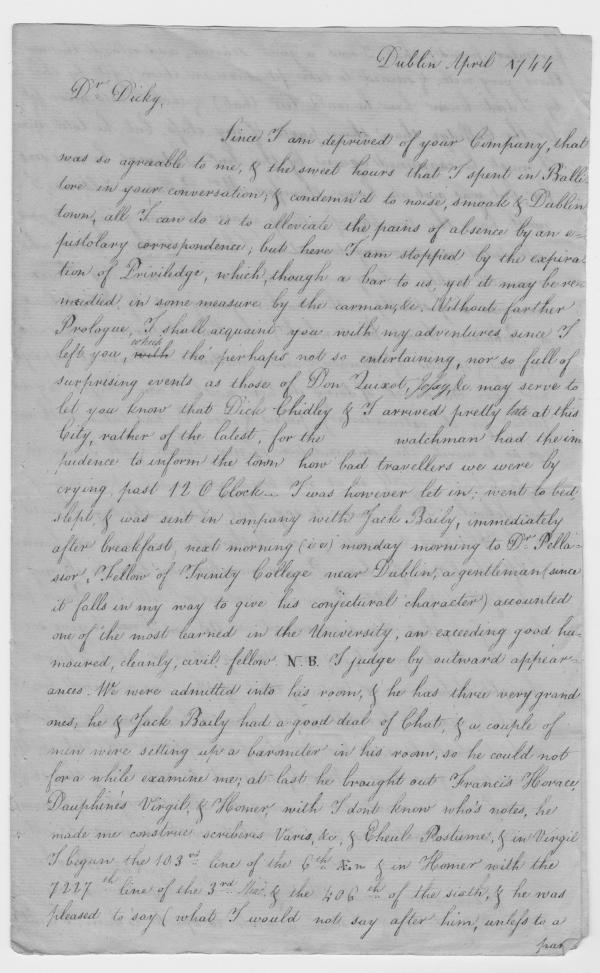 Dublin April 1744
Dr Dicky,
Since I am deprived of your Company, that
was so agreeable to me, & the sweet hours that I spent in Balli-
tore in your conversation; & condemn'd to noise, smoak & Dublin
town, all I can do is to alleviate the pains of absence by an e-
pistolary correspondence; but here I am stopped by the expira-
tion of Priviledge, which, though a bar to us, yet it may be re-
meidied in some measure by the carman, &c. Without farther
Prologue, I shall acquaint you with my adventures since I
left you, which tho' perhaps not so entertaining, nor so full of
surprising events as those of Don Quixot, &c may serve to
let you know that Dick Chidley & I arrived pretty late at this
City, rather of the latest, for the watchman had the im
pudence to inform the town how bad travellers we were by
crying past 12 O Clock— I was however let in; went to bed
slept & was sent in company with Jack Baily, immediately
after breakfast next morning (i e) monday morning to Dr Pella-
sior, Fellow of Trinity College near Dublin, a gentleman (since
it falls in my way to give his conjectural character) accounted
one of the most learned in the University, an exceeding good hu-
moured, cleanly, civil fellow. N.B. I judge by outward appear-
ances. We were admitted into his room, & he has three very grand
ones; he & Jack Baily had a good deal of Chat, & a couple of
men were setting up a barometer in his room, so he could not
for a while examine me; at last he brought out Francis' Horace,
Dauphine's Virgil, & Homer, with I dont know who's notes, he
made me construe scriberis Vario, &c, & Eheul Postume, & in Virgil
I begun the 103rd line of the 6th Æn & in Homer with the
7227th line of the 3rd & the 406th of the sixth, & he was
pleased to say (what I would not say after him, unless to a
par